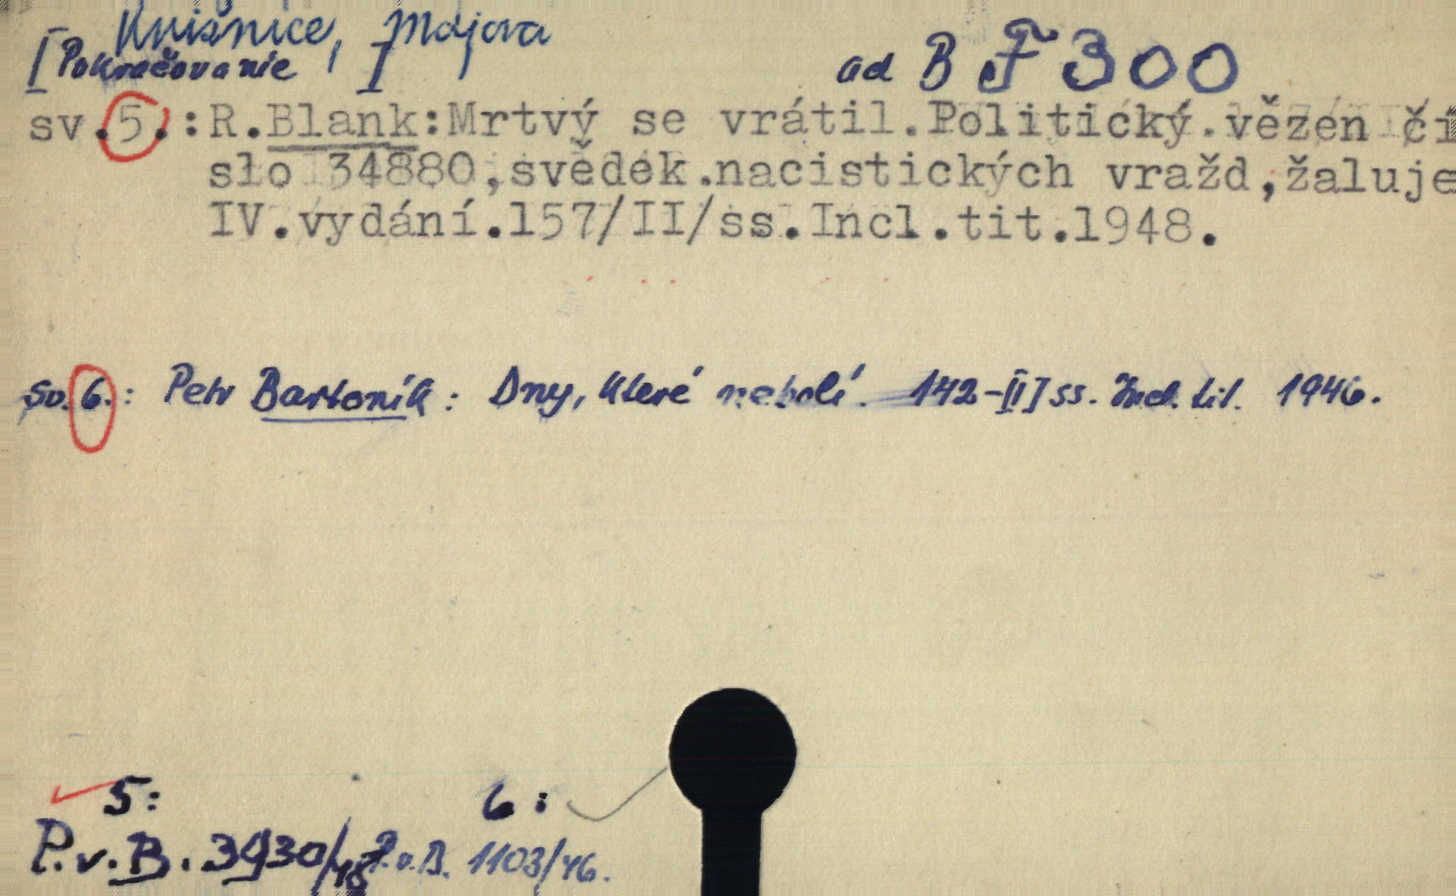 Knižnice, Májova
[Pokračovanie] ad B F 300
sv.5.:R.Blank:Mrtvý se vrátil.Politický.vězen čí
slo 34880,svědek.nacistických vražd,žaluje
IV.vydání.157/II/ss.Incl.tit.1948.
Sv. 6.: Petr Bartoník: Dny, které nebolí. 142-[II] ss. Incl. tit. 1946.
5: 6:
P.v.B. 3930/48 P.v.B. 1103/46.